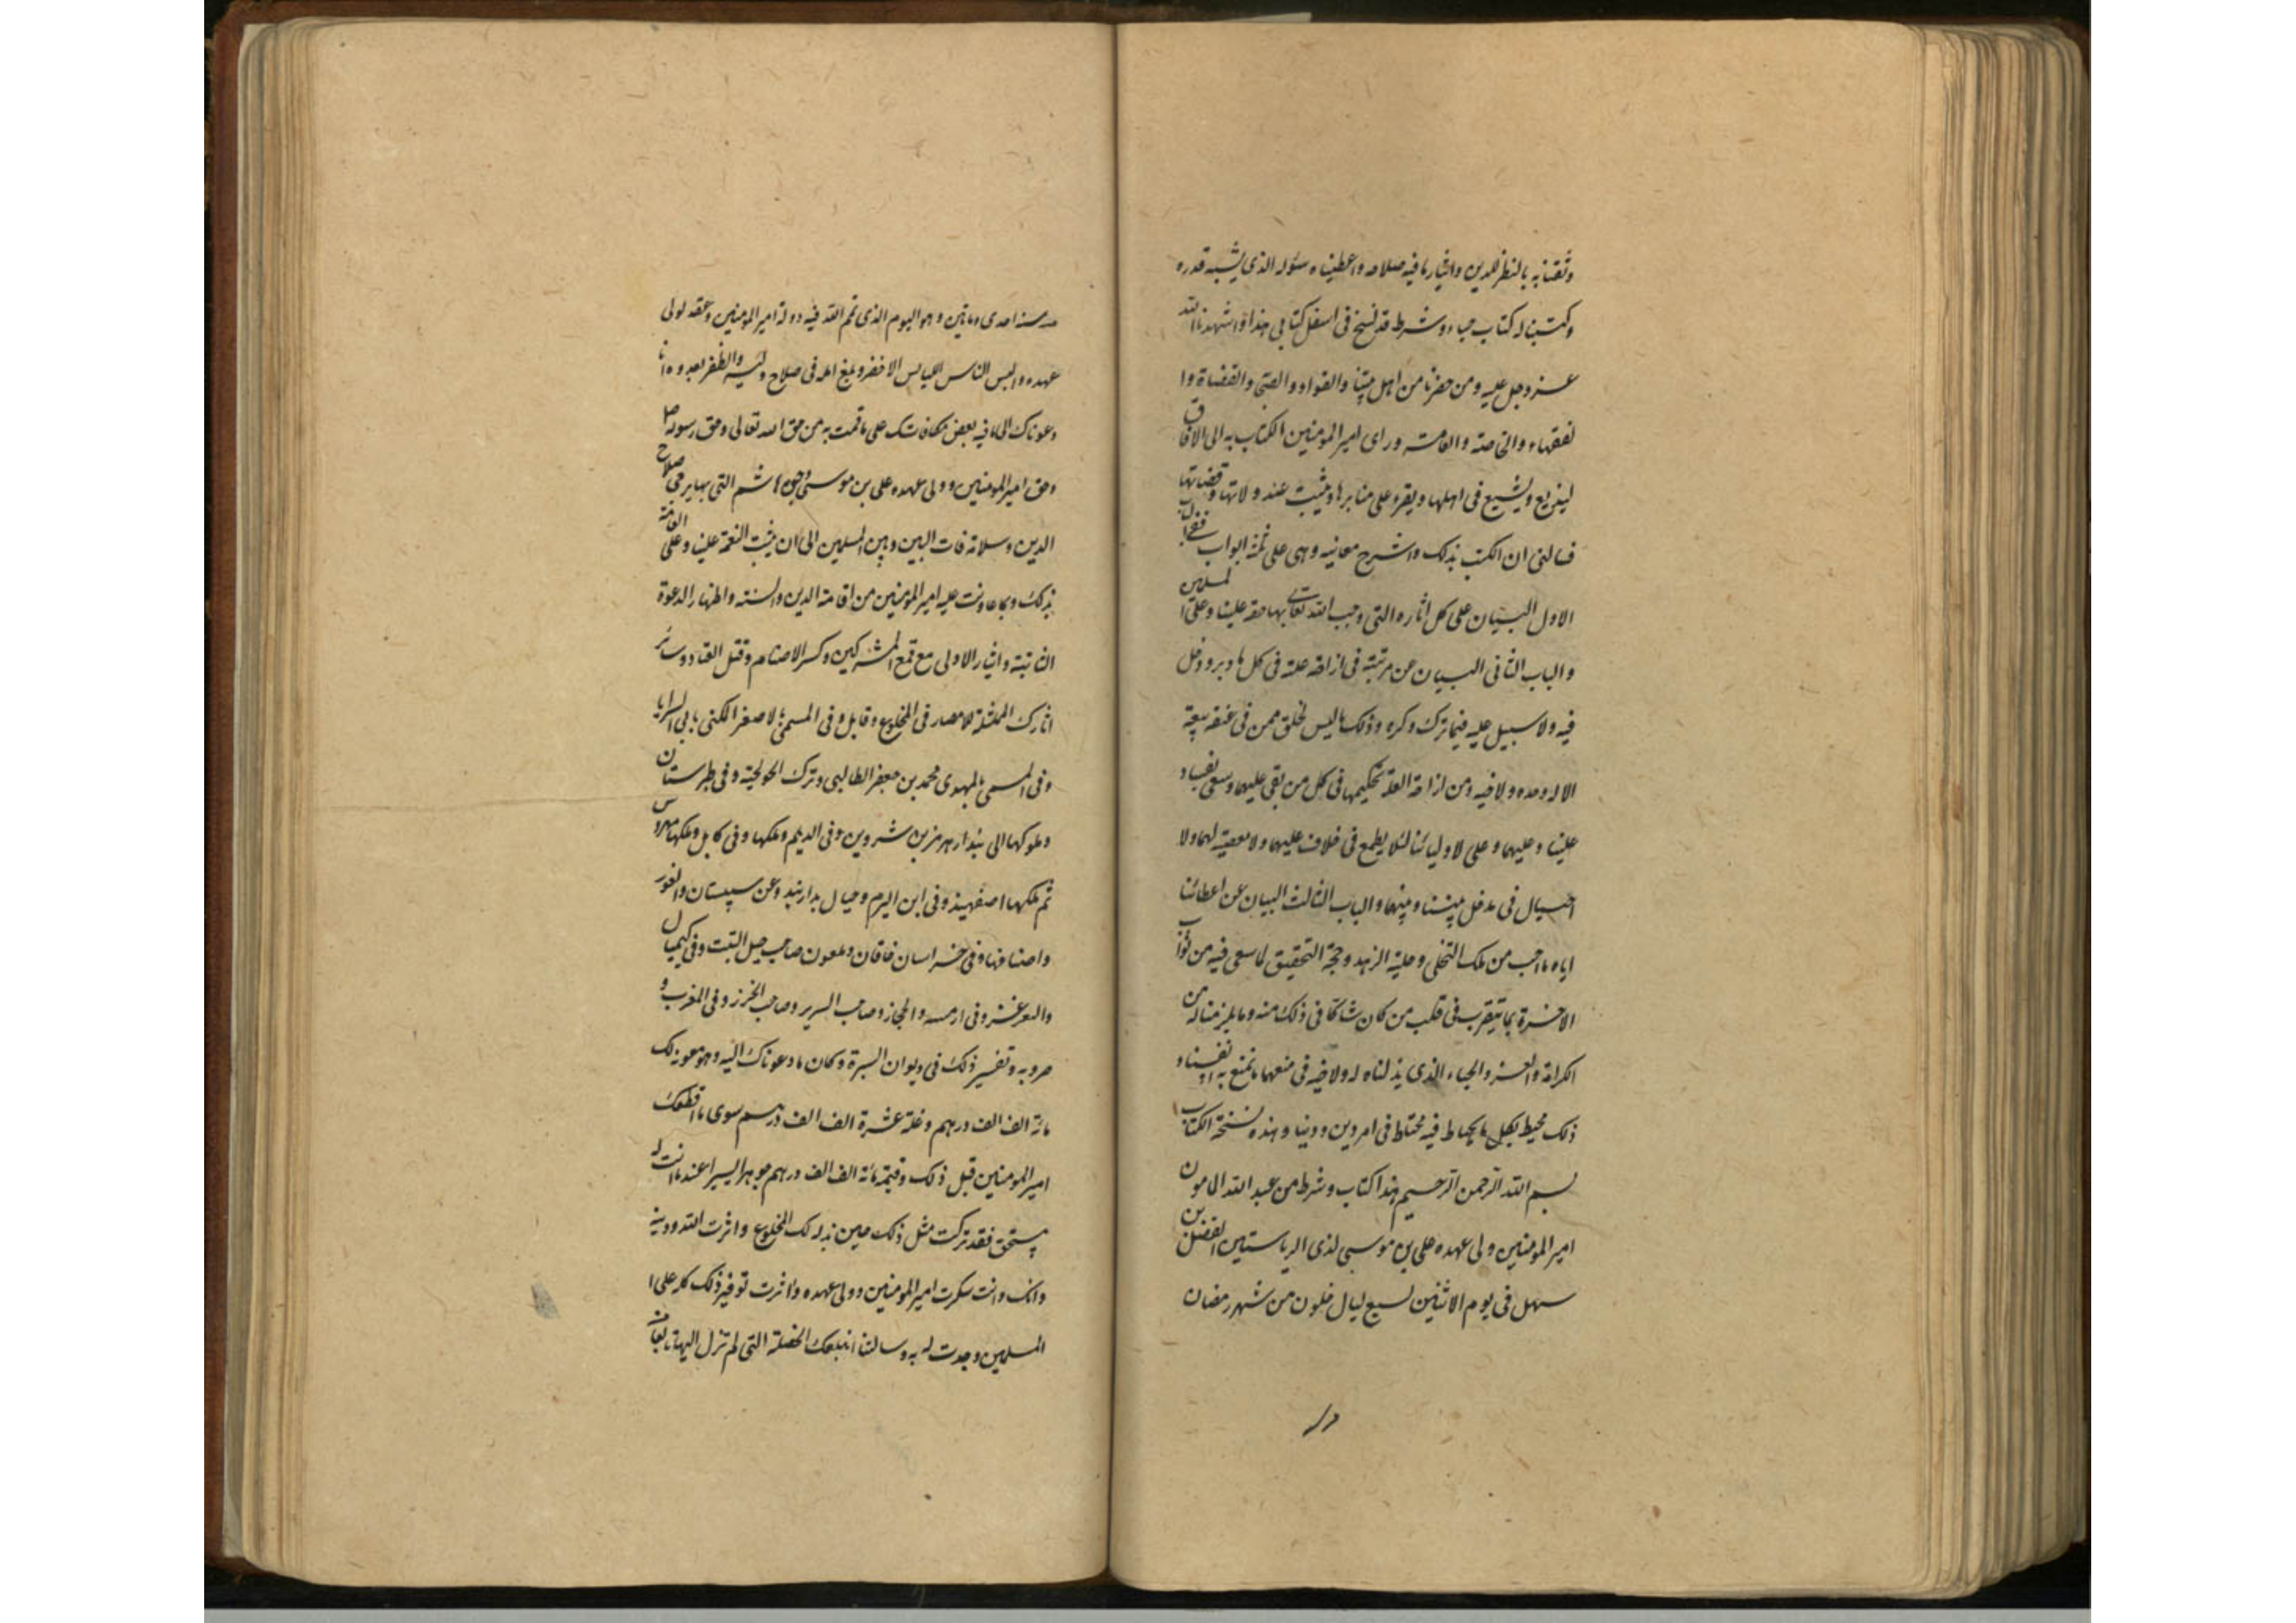 وثقنا به بالنظر للدين وايثار ما فيه صلاحه واعطيناه سؤله الذى يشبه قدره
وكتبنا له كتاب حباء وشرط قد نسخ فى اسفل كتابى هذا واشهدنا الله
عز وجل عليه ومن حضرنا من اهل بيتنا والقواد والصحابة والقضاة وا
لفقهاء والخاصة والعامة وراى امير المومنين الكتاب به الى الافاق
ليذيع ويشيع فى اهلها ويقرء على منابرها ويثبت عند ولاتها وقضاتها
فسالنى ان اكتب بذلك واشرح معانيه وهى على ثلثة ابواب ففى الباب
الاول البيان على كل اثاره التى اوجب الله تعالى بها حقه علينا وعلى المسلمين
والباب الثانى البيان عن مرتبته فى ازاحة علته فى كل ما دبر ودخل
فيه ولا سبيل عليه فيما ترك وكره وذلك ما ليس لخلق ممن فى عنقه بيعة
الا له وحده ولاخيه ومن ازاحة العلة تحكيمهما فى كل من بقى عليهما وسعى بفساد
علينا وعليهما وعلى لاوليائنا لئلا يطمع فى خلاف عليهما ولا معصية لهما ولا
احتيال فى مدخل بيننا وبينهما والباب الثالث البيان عن اعطائنا
اياه ما احب من ملك التخلى وحلية الزهد وحجة التحقيق لما سعى فيه من ثواب
الاخرة بما يتقرب فى قلب من كان شاكا فى ذلك منه وما يلزمنا له من
الكرامة والعز والحباء الذى بذلناه له ولاخيه فى منعهما ما نمنع به انفسنا و
ذلك محيط بكل ما يحتاط فيه محتاط فى امر دين ودنيا وهذه نسخة الكتاب
بسم الله الرحمن الرحيم هذا كتاب وشرط من عبد الله المامون
امير المومنين وولى عهده على بن موسى لذى الرياستين الفضل بن
سهل فى يوم الاثنين لسبع ليال خلون من شهر رمضان
من سنة احدى وماتين وهو اليوم الذى تمم الله فيه دولة امير المومنين وعقد لولى
عهده والبس الناس اللباس الاخضر وبلغ امله فى صلاح وليه والظفر بعدوه انا
دعوناك الى ما فيه بعض مكافاتك على ما قمت به من حق الله تعالى وحق رسوله
وحق امير المومنين وولى عهده على بن موسى وحق هاشم التى بها يرجى صلاح
الدين وسلامة ذات البين وبين المسلمين الى ان يثبت النعمة علينا وعلى العامة
بذلك وبما عاونت عليه امير المومنين من اقامة الدين والسنة واظهار الدعوة
الثانية وايثار الاولى مع قمع المشركين وكسر الاصنام وقتل العتاة وسائر
اثارك الممثلة للامصار فى المخلوع وقابل وفى المسمى بالاصغر المكنى بابى السرايا
وفى المسمى بالمهدى محمد بن جعفر الطالبى وترك الحولجية وفى طبرستان
وملوكها الى بندار هرمز بن شروين وفى الديلم وملكها وفى كابل وملكها مهروس
ثم ملكها اصفهبذ وفى ابن البرم وجبال بداربند وعن سيستان والغور
واصنافها وفى خراسان خاقان وملعون صاحب جبل التبت وفى كيماك
والتغزغز وفى ارمينيه والحجاز وصاحب السرير وصاحب الخزر وفى المغرب و
حروبه وتفسير ذلك فى ديوان السيرة وكان ما دعوناك اليه وهو معونة لك
مائة الف الف درهم وغلة عشرة الف الف درهم سوى ما اقطعك
امير المومنين قبل ذلك وقيمة مائة الف الف درهم جوهرا يسيرا عند ما انت له
يستحق فقد تركت مثل ذلك حين بذله لك المخلوع واثرت الله ودينه
وانك وانت شكرت امير المومنين وولى عهده واثرت توفير ذلك كله على ا
المسلمين وجدت له به وسالتنا ان نبلغك الخصلة التى لم تزل اليها